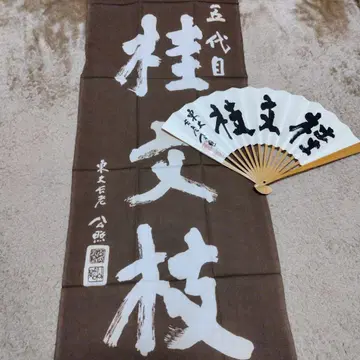 五代目
桂文枝
東大長老
公照
桂文枝